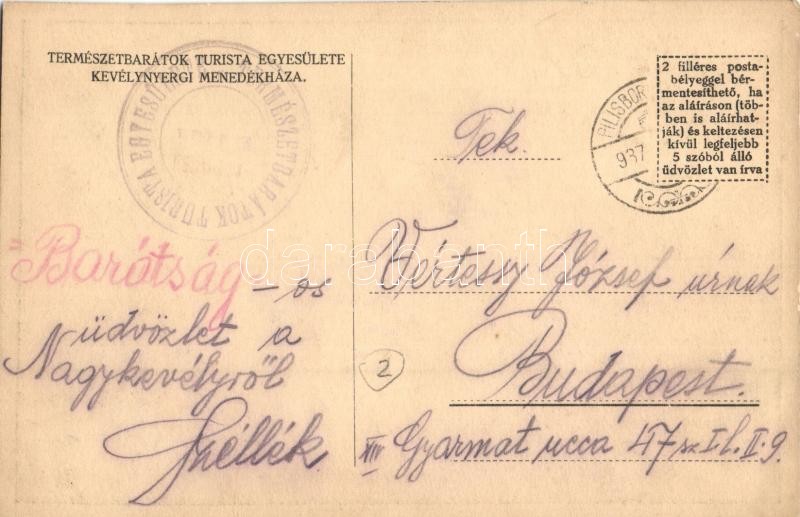 TERMÉSZETBARÁTOK TURISTA EGYESÜLETE
KEVÉLYNYERGI MENEDÉKHÁZA.
TERMÉSZETBARÁTOK TURISTA EGYESÜLETE
2 filléres posta-
bélyeggel bér-
mentesíthető, ha
az aláíráson (töb-
ben is aláírhat-
ják) és keltezésen
kívül legfeljebb
5 szóból álló
üdvözlet van írva
PILISBOR
937
Tek.
"Barátság"-os
üdvözlet a
Nagykevélyről
Vértessy József úrnak
2
Budapest.
XIV Gyarmat ucca 47 sz I. l. II. 9.
darabanth